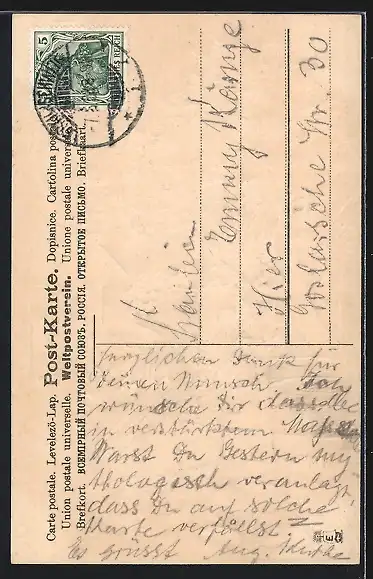 Carte postale. Levelező-Lap. Post-Karte. Dopisnice. Cartolina pos
Union postale universelle. Weltpostverein. Unione postale univer
Brefkort. ВСЕМІРНЫЙ ПОЧТОВЫЙ СОЮЗЪ. РОССІЯ. ОТКРЫТОЕ ПИСЬМО. Briefkaart.
5
DEUTSCHES REICH
Fräulein
Emmy Runge
Hier
Goslarsche Str. 30
herzlichen Dank für
Deinen Wunsch. Ich
wünsche Dir dasselbe
in verstärktem
Warst Du Gestern my
thologisch veranlagt,
dass Du auf solche
Karte verfällst?
Es Grüsst Aug.